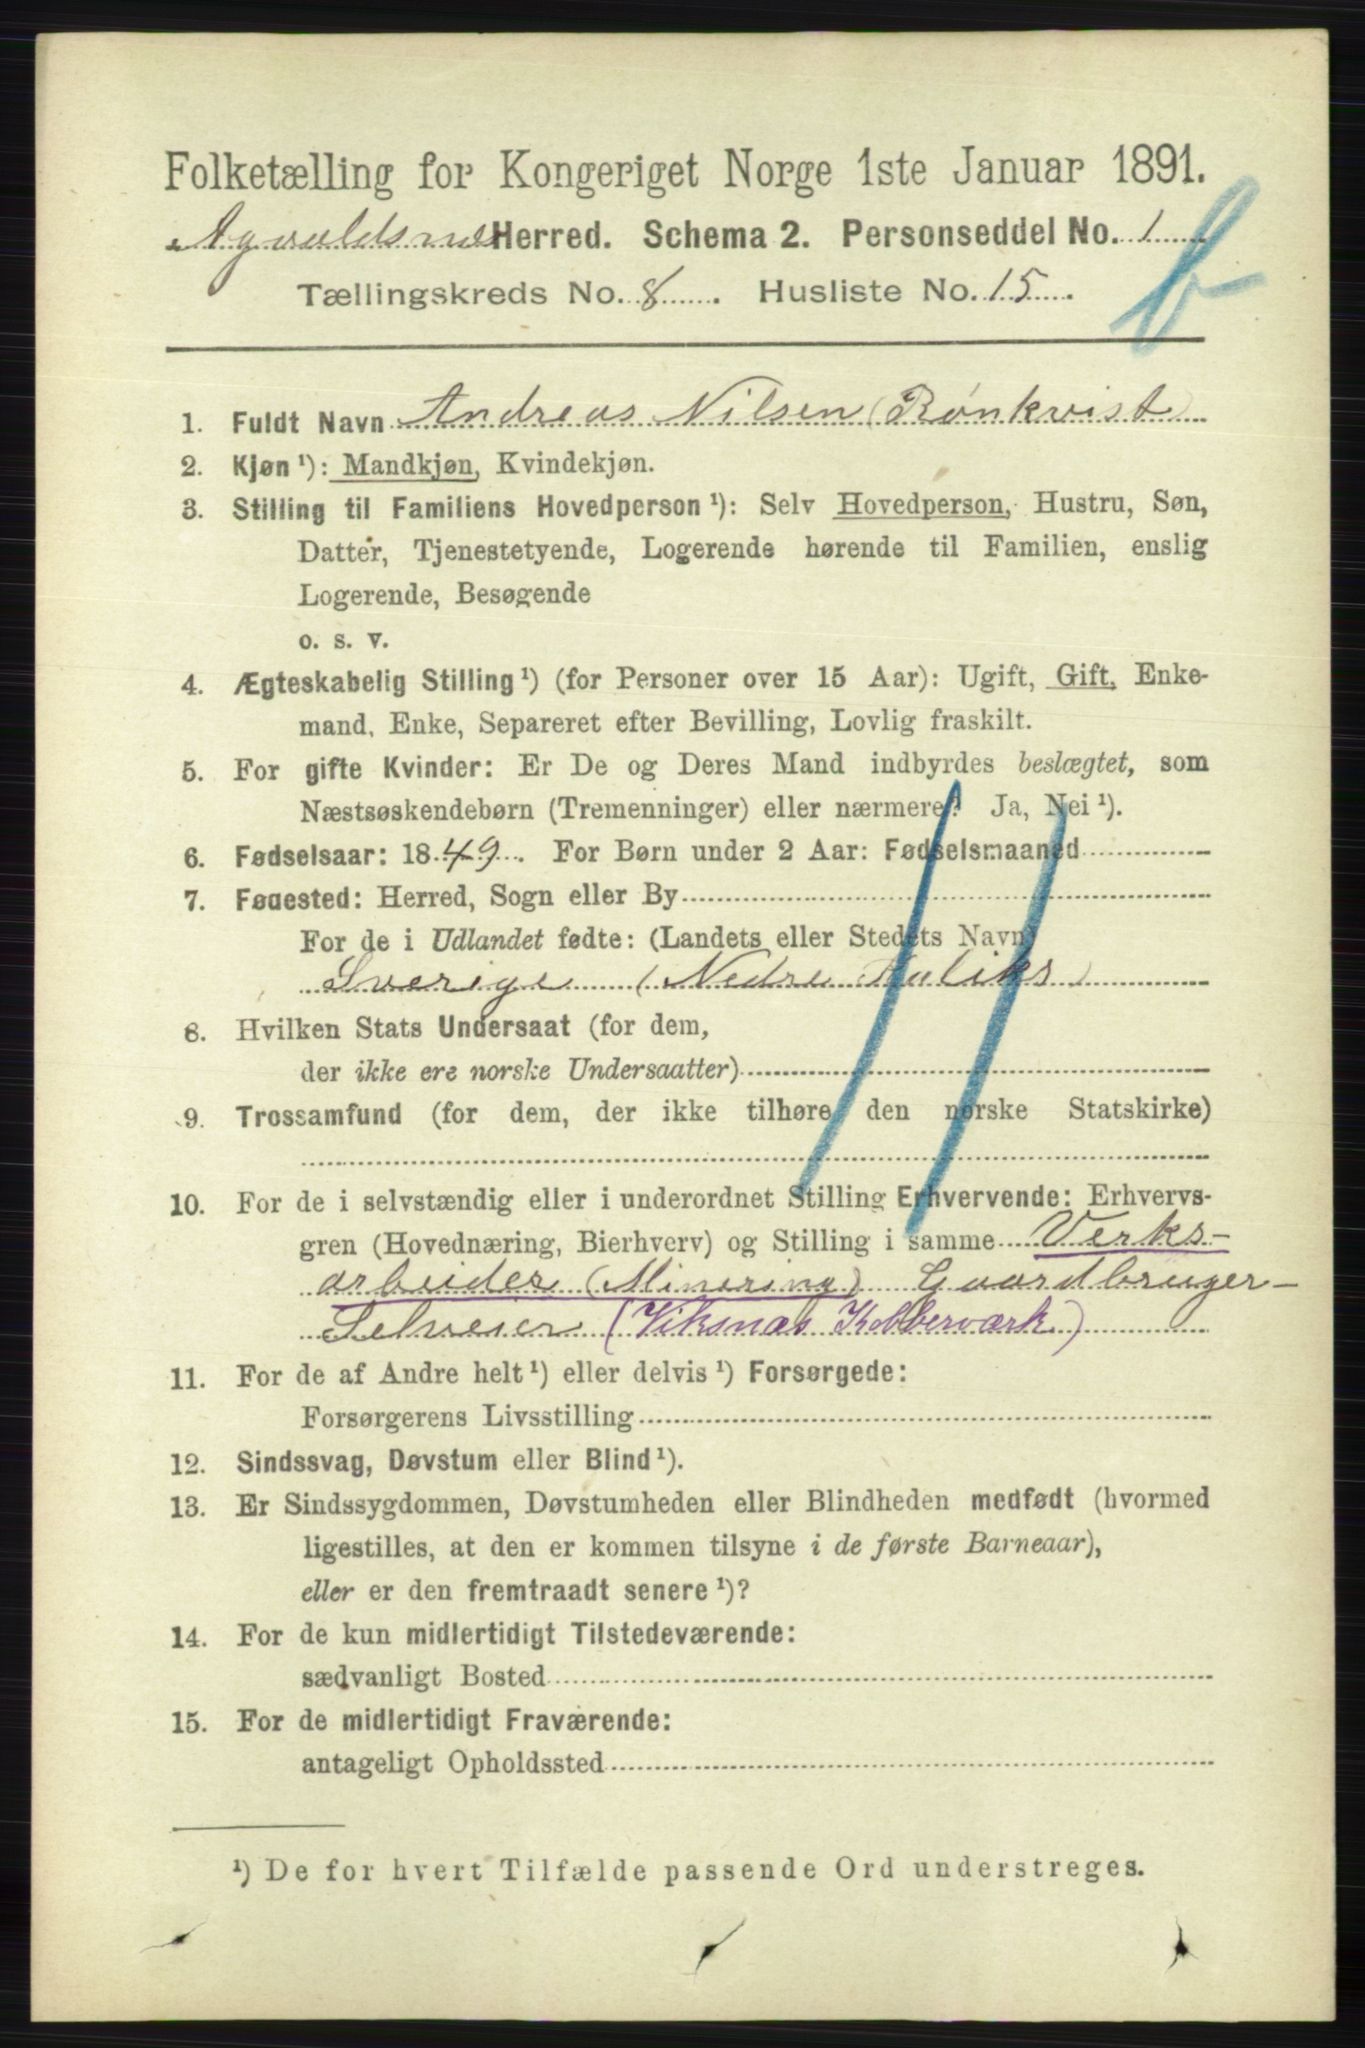 Folketælling for Kongeriget Norge 1ste Januar 1891.
Agvaldsnes Herred. Schema 2. Personseddel No. 1
Tællingskreds No. 8. Husliste No. 15.
b
1. Fuldt Navn Andreas Nilsen (Rönkvist)
2. Kjøn ¹): Mandkjøn, Kvindekjøn.
3. Stilling til Familiens Hovedperson ¹): Selv Hovedperson, Hustru, Søn,
Datter, Tjenestetyende, Logerende hørende til Familien, enslig
Logerende, Besøgende
o. s. v.
4. Ægteskabelig Stilling ¹) (for Personer over 15 Aar): Ugift, Gift, Enke-
mand, Enke, Separeret efter Bevilling, Lovlig fraskilt.
5. For gifte Kvinder: Er De og Deres Mand indbyrdes beslægtet, som
Næstsøskendebørn (Tremenninger) eller nærmere? Ja, Nei ¹).
6. Fødselsaar: 1849. For Børn under 2 Aar: Fødselsmaaned
7. Fødested: Herred, Sogn eller By
For de i Udlandet fødte: (Landets eller Stedets Navn)
Sverige (Nedre Kaliks)
8. Hvilken Stats Undersaat (for dem,
der ikke ere norske Undersaatter)
9. Trossamfund (for dem, der ikke tilhøre den norske Statskirke)
10. For de i selvstændig eller i underordnet Stilling Erhvervende: Erhvervs-
gren (Hovednæring, Bierhverv) og Stilling i samme Verks-
arbeider (Minering) Gaardbruger-
Selveier (Viksnæs Kobberværk)
11. For de af Andre helt ¹) eller delvis ¹) Forsørgede:
Forsørgerens Livsstilling
12. Sindssvag, Døvstum eller Blind ¹).
13. Er Sindssygdommen, Døvstumheden eller Blindheden medfødt (hvormed
ligestilles, at den er kommen tilsyne i de første Barneaar),
eller er den fremtraadt senere ¹)?
14. For de kun midlertidigt Tilstedeværende:
sædvanligt Bosted
15. For de midlertidigt Fraværende:
antageligt Opholdssted
¹) De for hvert Tilfælde passende Ord understreges.